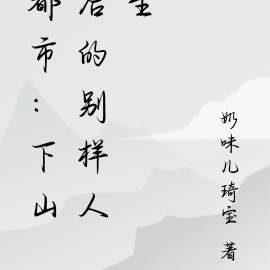 都市：下山
后的别样人
生
奶味儿琦宝 著